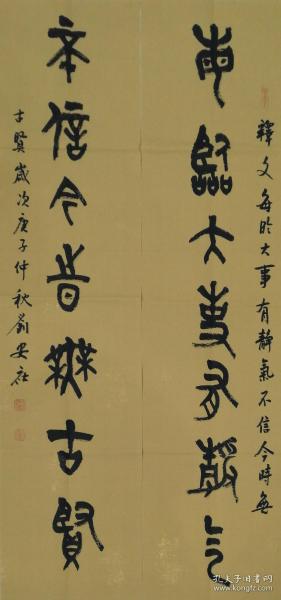 釋文每於大事有靜氣不信今時無
每臨大事有靜氣
不信今時無古賢
古賢歲次庚子仲秋劉安
孔夫子旧书网
kongfz.com